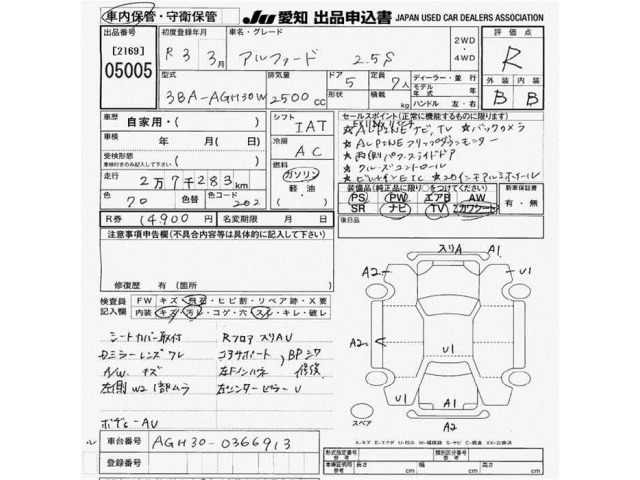 車内保管・守衛保管
JU 愛知 出品申込書 JAPAN USED CAR DEALERS ASSOCIATION
出品番号 初度登録年月 車名・グレード 評価点
[2169]
05005
R3 3月 アルファード 2.5S
2WD
・
4WD
R
型式 排気量 ドア 定員 ディーラー・並行 外装 内装
3BA-AGH30W 2500cc
5 7人
形状 積載量 kg
モデル年式 年式
ハンドル 左・右
B B
車歴 自家用・( ) シフト IAT
車検 年 月 日 冷房 AC
受検形態
走行 2万7千283km
燃料 ガソリン・軽油・( )
色 70 色替 色コード 202
R券 14900円 名変期限 月 日
セールスポイント(正常に機能するものに限ります)
☆ALPINEナビ,TV ☆バックカメラ
☆ALPINEフリップダウンモニター
☆両側パワースライドドア
☆クルーズコントロール
☆ビルトインETC ☆20インチアルミホイール
装備品(純正品に限り○をつけてください) 新車保証書
PS PW エアB AW
SR ナビ TV カワシート
有・無
後日品
注意事項申告欄(不具合内容等は具体的に記入して下さい)
修復歴 有 (箇所 )
検査員記入欄
FW キズ・飛石・ヒビ割・リペア跡・X要
内装 キズ・汚レ・コゲ・穴・スレ・キレ・破レ
シートカバー取付 Rフロア スリAU
Dミラーレンズワレ コアサポート, BPシワ
A/W キズ 修復
左側 W2 1部ムラ 左センターピラーU
ボデーAU
入リA A1
A2 U1
A2
U1
U1 A1 U1
A2
スペア
車台番号 AGH30-0366913
登録番号
A-キズ E-エクボ U-凹み W-補修跡 S-サビ C-腐食 XX-交換済
形式指定番号 類別区分番号
車庫証明用参考 長さ cm 幅 cm 高さ cm